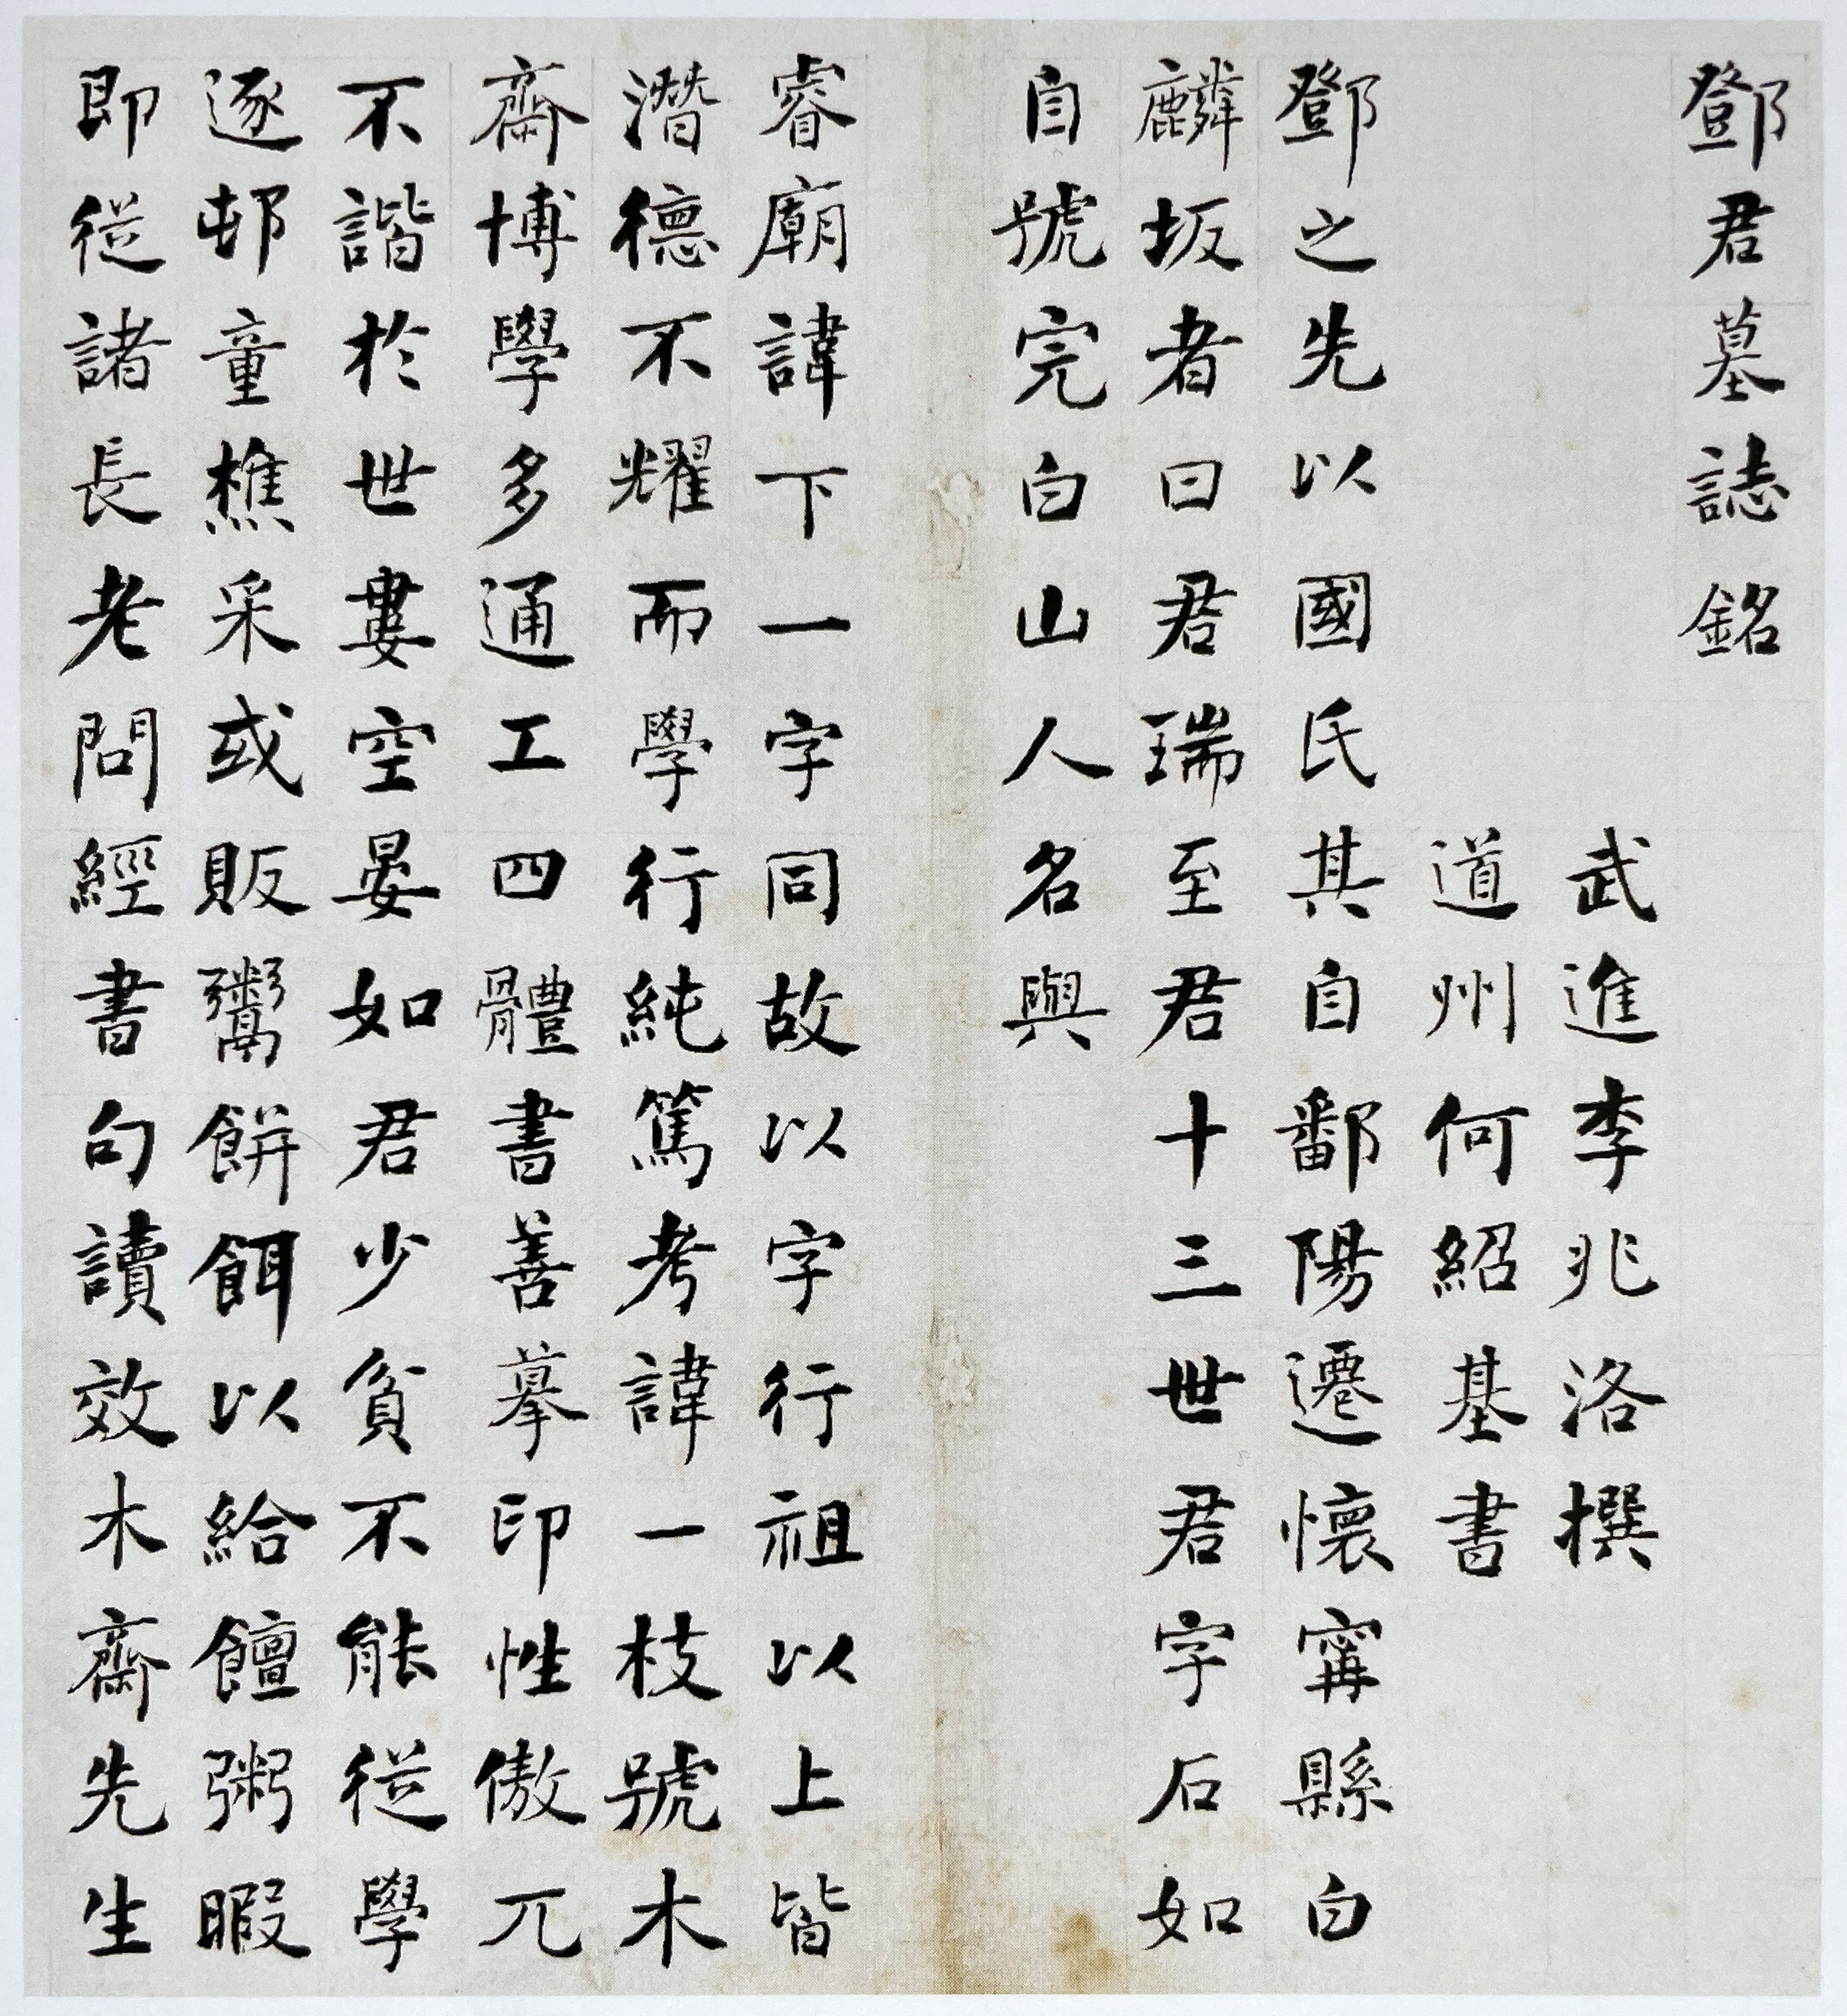 鄧君墓誌銘
武進李兆洛撰
道州何紹基書
鄧之先以國氏其自鄱陽遷懷甯縣白
麟坂者曰君瑞至君十三世君字石如
自號完白山人名與
睿廟諱下一字同故以字行祖以上皆
潛德不耀而學行純篤考諱一枝號木
齋博學多通工四體書善摹印性傲兀
不諧於世婁空晏如君少貧不能從學
逐邨童樵采或販鬻餅餌以給饘粥暇
即從諸長老問經書句讀效木齋先生